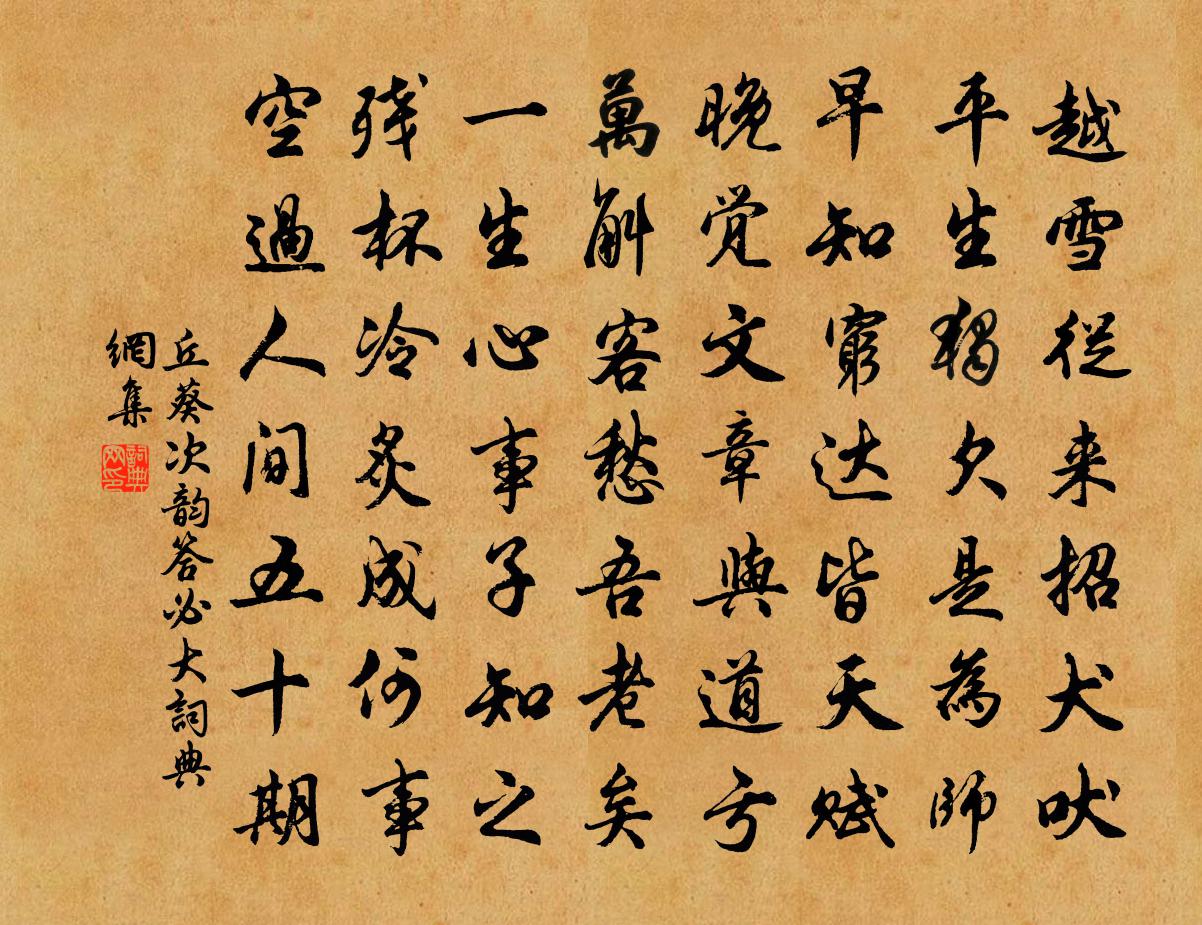 越雪従来招犬吠
平生独欠是為師
早知窮达皆天赋
晚觉文章與道亏
萬斛客愁吾老矣
一生心事子知之
残杯冷炙成何事
空過人间五十期
丘葵次韵答必大詞典
網集
詞典
网印